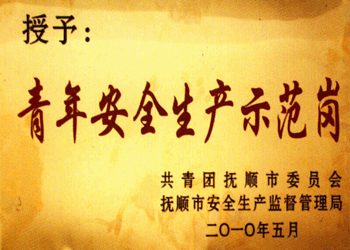 授予：
青年安全生产示范岗
共青团抚顺市委员会
抚顺市安全生产监督管理局
二〇一〇年五月